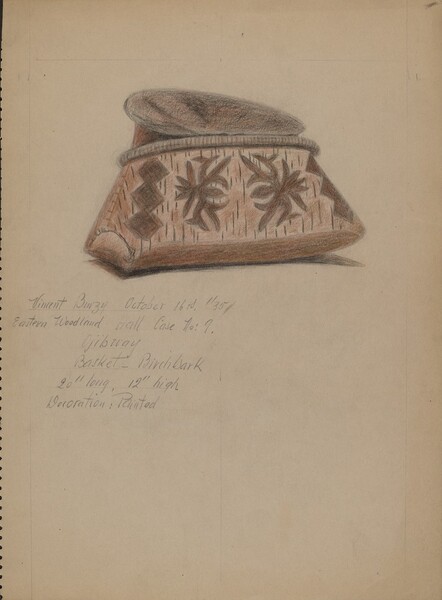 Vincent Burzy October 16th 1935
Eastern Woodland Wall Case No: 7.
Ojibway
Basket - Birchbark
20" long, 12" high
Decoration: Painted